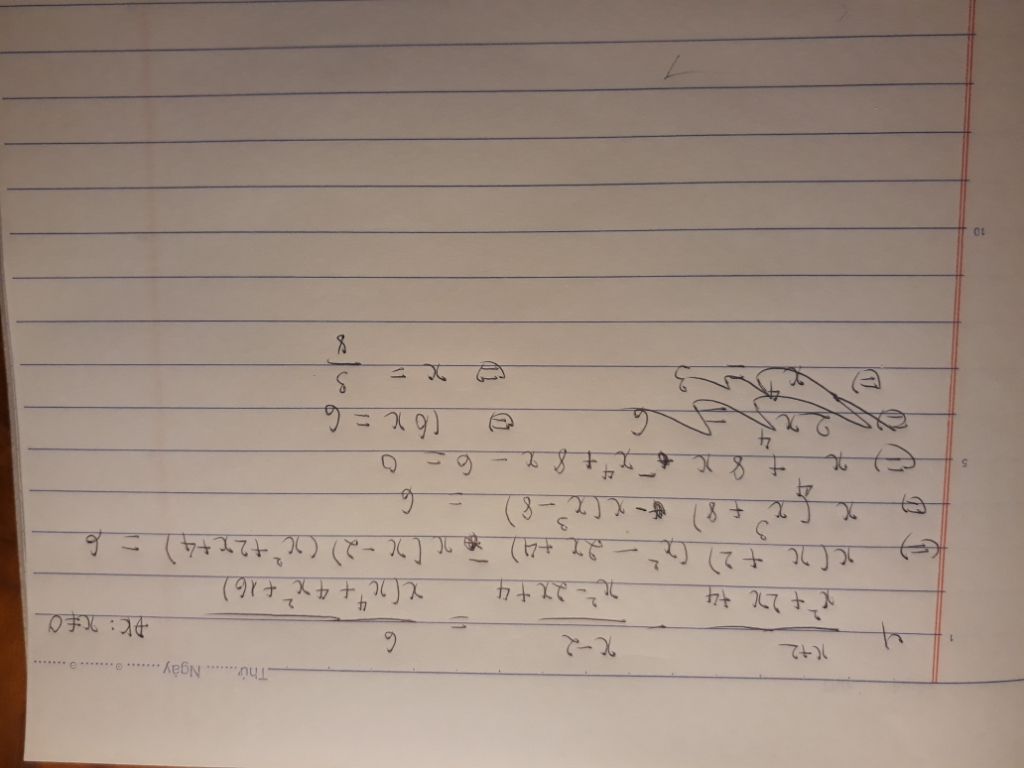 Thứ......... Ngày......... 0......... 3.........
4) (x+2)/(x²+2x+4) - (x-2)/(x²-2x+4) = 6/(x(x⁴+4x²+16)) ĐK: x≠0
(=) x(x+2)(x²-2x+4) - x(x-2)(x²+2x+4) = 6
(=) x(x³+8) - x(x³-8) = 6
(=) x⁴ + 8x - x⁴ + 8x - 6 = 0
(=) 2x⁴ = 6 (=) 16x = 6
(=) x⁴ = 3 (=) x = 3/8
1
5
10